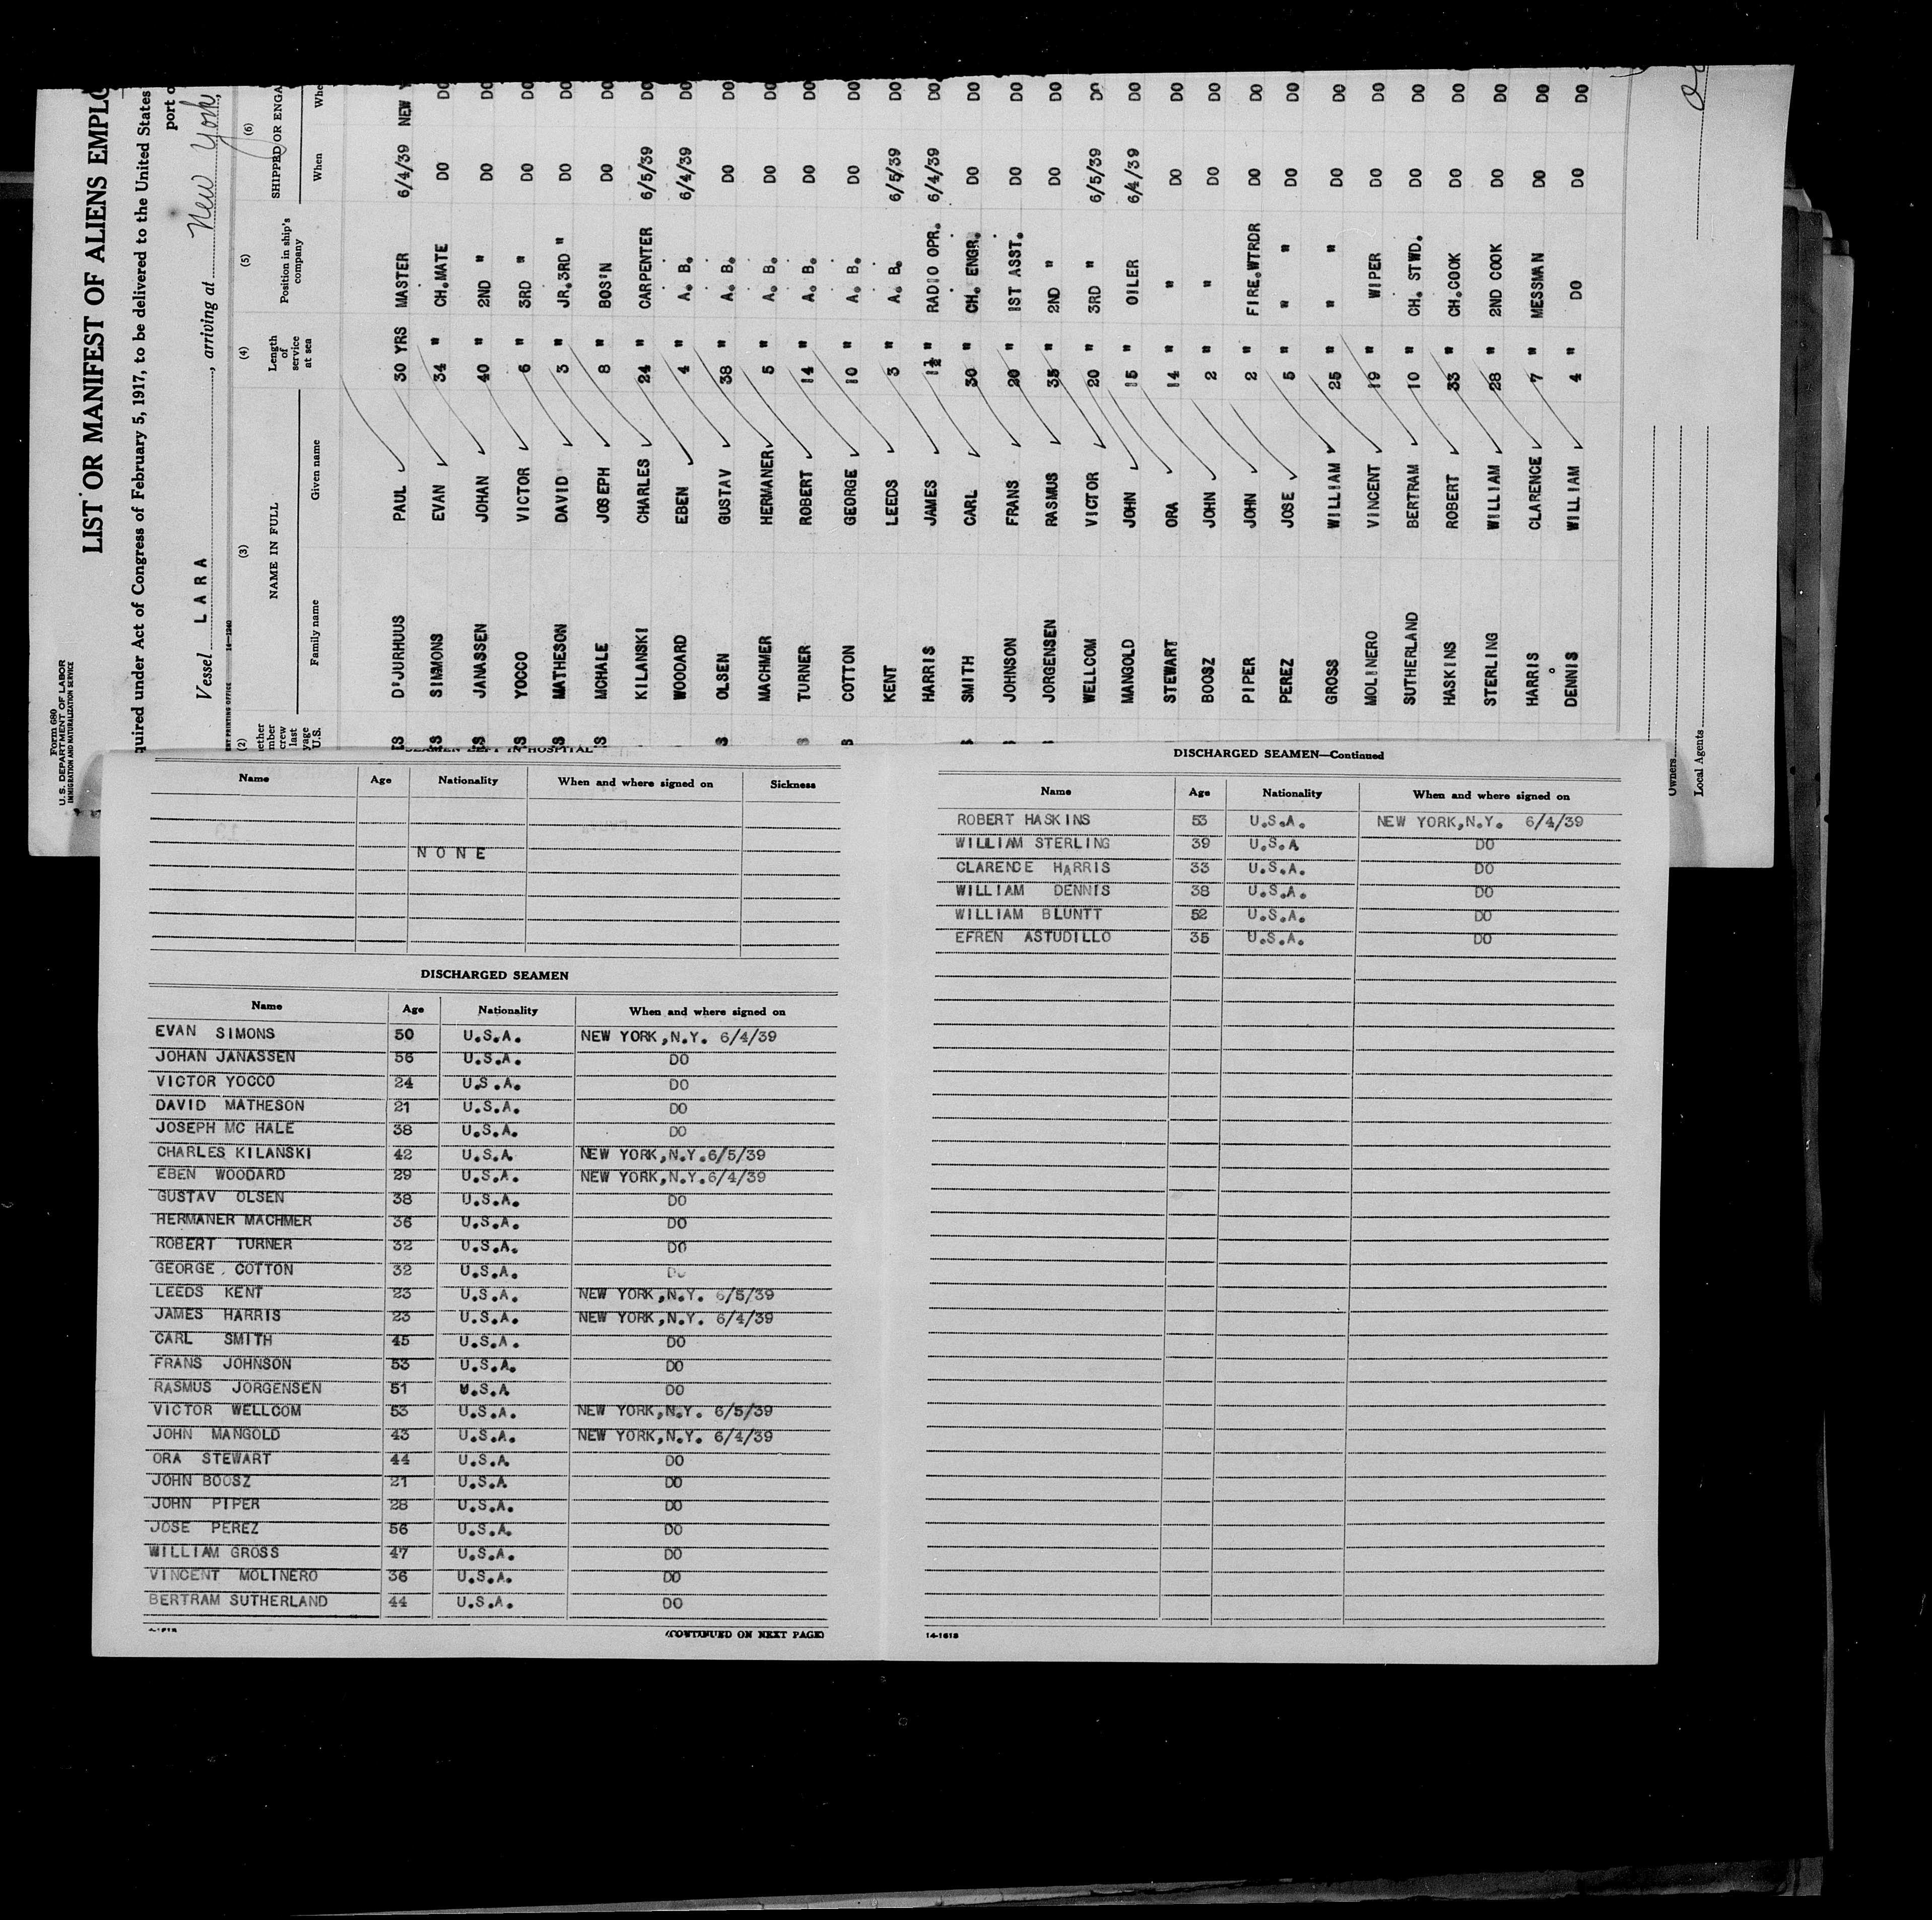 Form 680
U. S. DEPARTMENT OF LABOR
IMMIGRATION AND NATURALIZATION SERVICE
LIST OR MANIFEST OF ALIENS EMPLO
quired under Act of Congress of February 5, 1917, to be delivered to the United States
port o
Vessel LARA, arriving at New York,
(2) (3) (4) (5) (6)
NAME IN FULL Length of service at sea Position in ship's company SHIPPED OR ENGA
Family name Given name When Whe
D'JURHUUS PAUL 30 YRS MASTER 6/4/39 NEW Y
SIMMONS EVAN 34 " CH.MATE DO DO
JANASSEN JOHAN 40 " 2ND " DO DO
YOCCO VICTOR 6 " 3RD " DO DO
MATHESON DAVID 3 " JR.3RD " DO DO
MCHALE JOSEPH 8 " BOS'N DO DO
KILANSKI CHARLES 24 " CARPENTER 6/5/39 DO
WOODARD EBEN 4 " A. B. 6/4/39 DO
OLSEN GUSTAV 38 " A. B. DO DO
MACHMER HERMANER 5 " A. B. DO DO
TURNER ROBERT 14 " A. B. DO DO
COTTON GEORGE 10 " A. B. DO DO
KENT LEEDS 3 " A. B. 6/5/39 DO
HARRIS JAMES 1½ " RADIO OPR. 6/4/39 DO
SMITH CARL 30 " CH. ENGR. DO DO
JOHNSON FRANS 20 " 1ST ASST. DO DO
JORGENSEN RASMUS 35 " 2ND " DO DO
WELLCOM VICTOR 20 " 3RD " 6/5/39 DO
MANGOLD JOHN 15 " OILER 6/4/39 DO
STEWART ORA 14 " " DO DO
BOOSZ JOHN 2 " " DO DO
PIPER JOHN 2 " FIRE.WTRDR DO DO
PEREZ JOSE 5 " " " DO DO
GROSS WILLIAM 25 " " " DO DO
MOLINERO VINCENT 19 " WIPER DO DO
SUTHERLAND BERTRAM 10 " CH. STWD. DO DO
HASKINS ROBERT 33 " CH.COOK DO DO
STERLING WILLIAM 28 " 2ND COOK DO DO
HARRIS CLARENCE 7 " MESSMAN DO DO
DENNIS WILLIAM 4 " DO DO DO
Owners
Local Agents
SEAMEN LEFT IN HOSPITAL
Name Age Nationality When and where signed on Sickness
NONE
DISCHARGED SEAMEN
Name Age Nationality When and where signed on
EVAN SIMONS 50 U.S.A. NEW YORK,N.Y. 6/4/39
JOHAN JANASSEN 56 U.S.A. DO
VICTOR YOCCO 24 U.S.A. DO
DAVID MATHESON 21 U.S.A. DO
JOSEPH MC HALE 38 U.S.A. DO
CHARLES KILANSKI 42 U.S.A. NEW YORK,N.Y.6/5/39
EBEN WOODARD 29 U.S.A. NEW YORK,N.Y.6/4/39
GUSTAV OLSEN 38 U.S.A. DO
HERMANER MACHMER 36 U.S.A. DO
ROBERT TURNER 32 U.S.A. DO
GEORGE COTTON 32 U.S.A. DO
LEEDS KENT 23 U.S.A. NEW YORK,N.Y. 6/5/39
JAMES HARRIS 23 U.S.A. NEW YORK,N.Y. 6/4/39
CARL SMITH 45 U.S.A. DO
FRANS JOHNSON 53 U.S.A. DO
RASMUS JORGENSEN 51 U.S.A DO
VICTOR WELLCOM 53 U.S.A. NEW YORK,N.Y. 6/5/39
JOHN MANGOLD 43 U.S.A. NEW YORK,N.Y. 6/4/39
ORA STEWART 44 U.S.A DO
JOHN BOOSZ 21 U.S.A DO
JOHN PIPER 28 U.S.A. DO
JOSE PEREZ 56 U.S.A. DO
WILLIAM GROSS 47 U.S.A. DO
VINCENT MOLINERO 36 U.S.A. DO
BERTRAM SUTHERLAND 44 U.S.A. DO
(CONTINUED ON NEXT PAGE)
DISCHARGED SEAMEN—Continued
Name Age Nationality When and where signed on
ROBERT HASKINS 53 U.S.A. NEW YORK,N.Y. 6/4/39
WILLIAM STERLING 39 U.S.A DO
CLARENCE HARRIS 33 U.S.A. DO
WILLIAM DENNIS 38 U.S.A. DO
WILLIAM BLUNTT 52 U.S.A. DO
EFREN ASTUDILLO 35 U.S.A. DO
14-1618